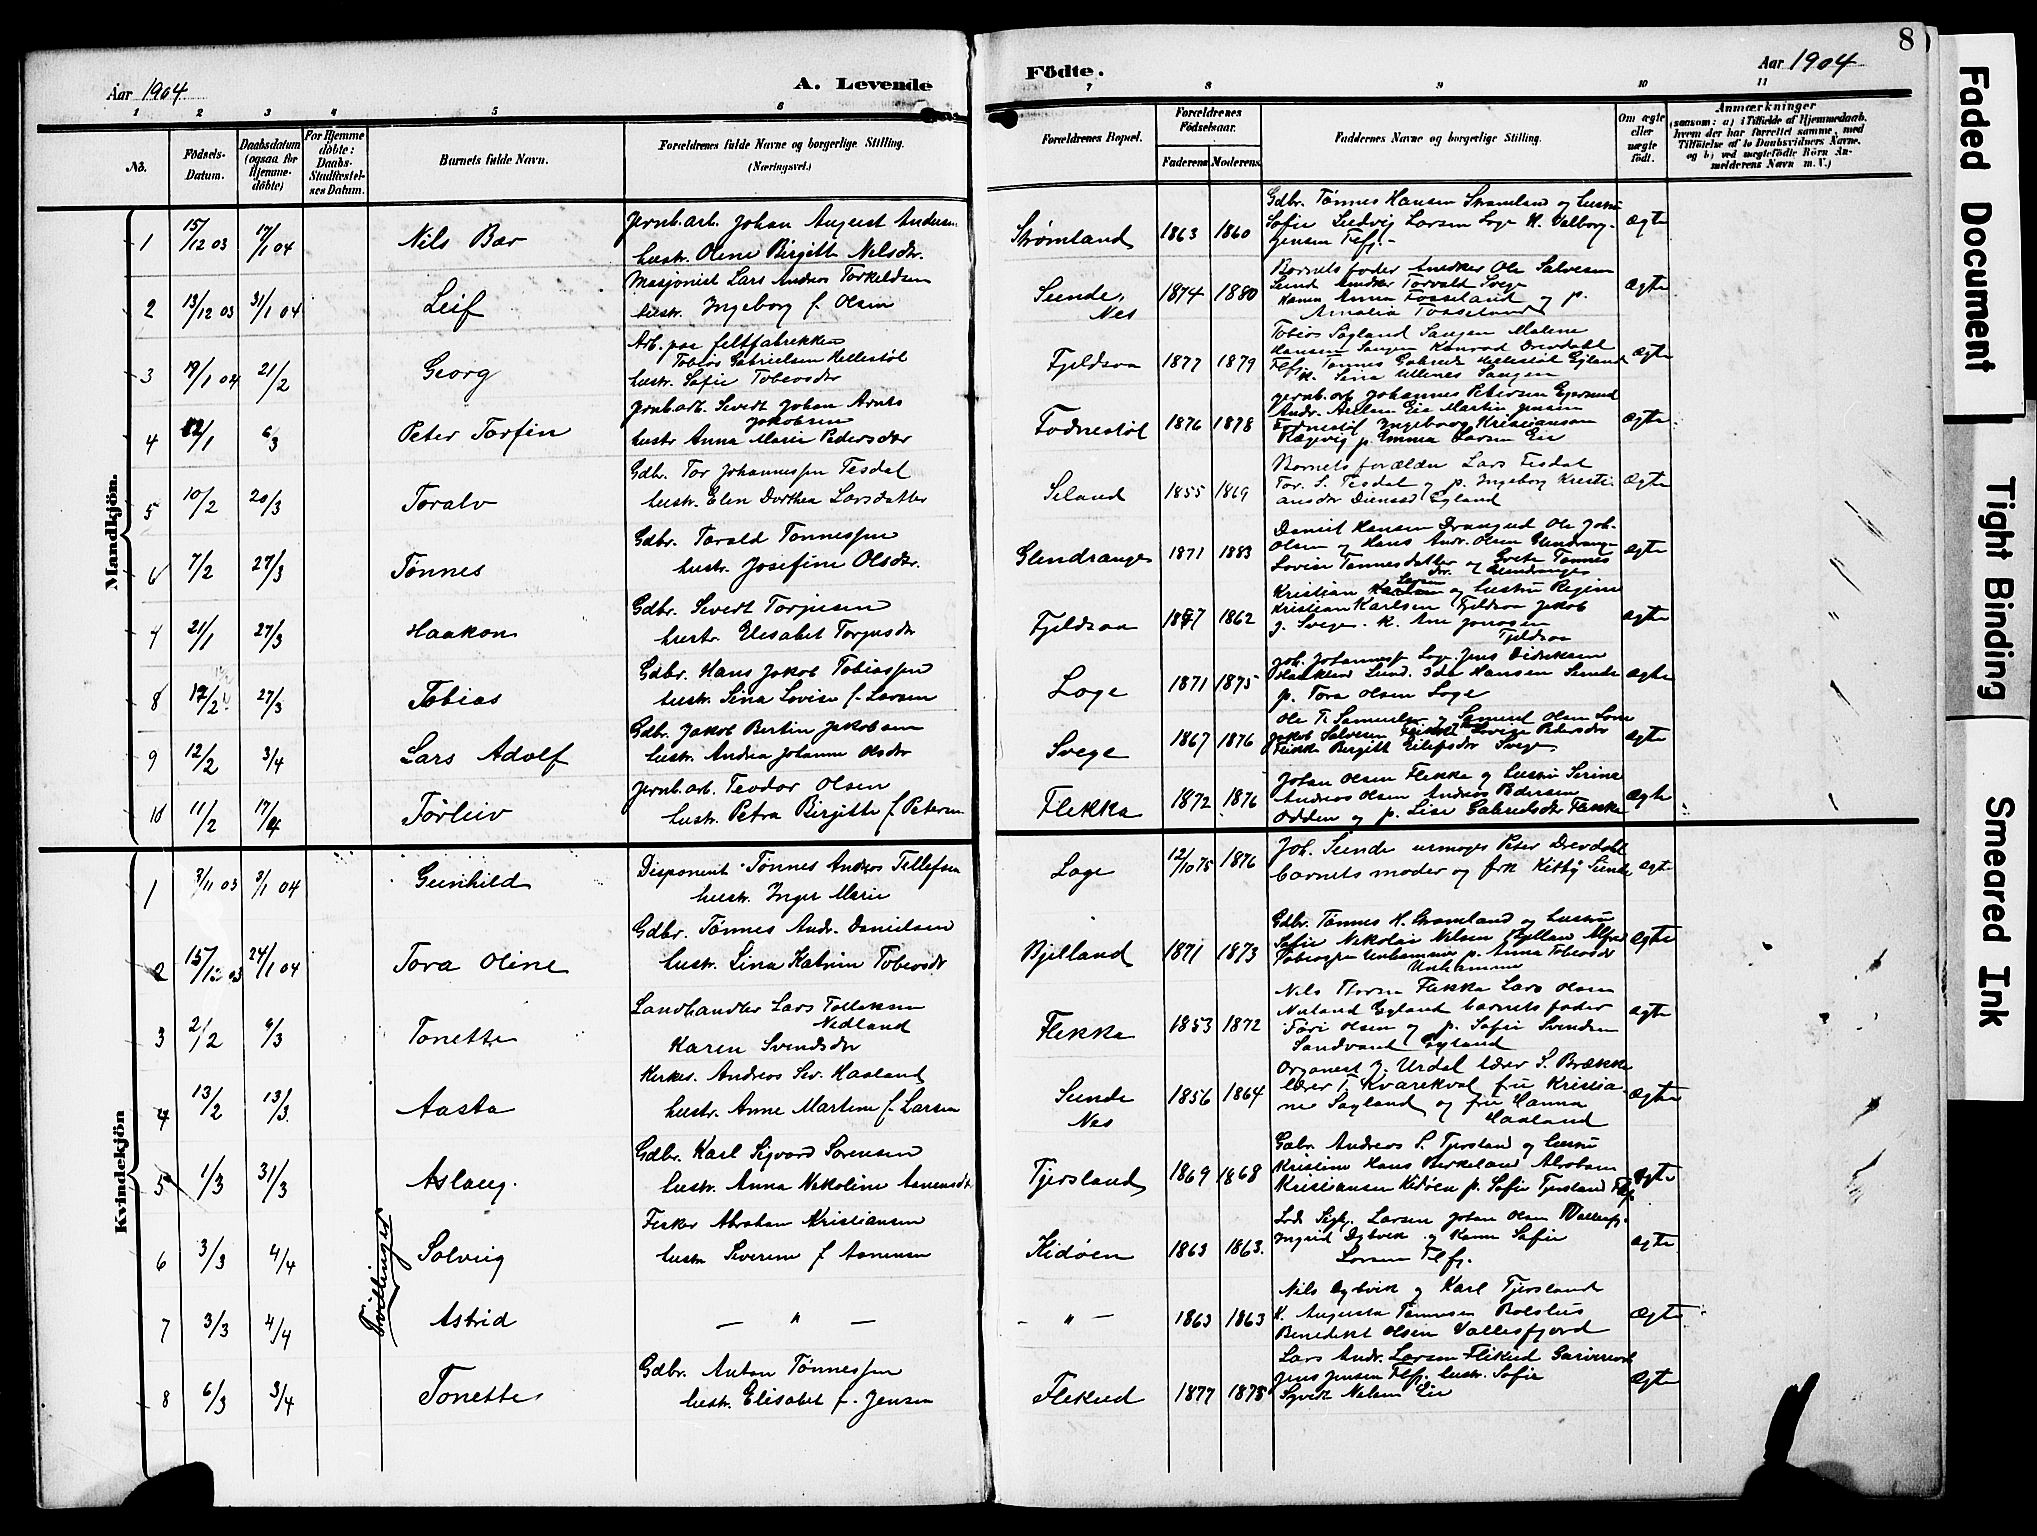 8
Aar 1904
A. Levende
Födte.
Aar 1904
1 2 3 4 5 6 7 8 9 10 11
No.
Födsels-
Datum.
Daabsdatum
(ogsaa for
Hjemme-
döbte)
For Hjemme
döbte:
Daabs-
Stadfæstel-
ses Datum.
Barnets fulde Navn.
Forældrenes fulde Navne og borgerlige Stilling.
(Næringsvei.)
Forældrenes Bopæl.
Forældrenes
Födselsaar.
Faderens Moderens
Faddernes Navne og borgerlige Stilling.
Om ægte
eller
uægte
födt.
Anmærkninger
(saasom: a) i Tilfælde af Hjemmedaab,
hvem der har forrettet samme, med
Tilföielse af to Daabsvidners Navne,
og b) ved uægtefödte Börn An-
melderens Navn m. V.)
Mandkjön.
1 15/12 03 17/1 04 Nils Bar
Jernb.arb. Johan August Andersen
hustr. Oline Birgitte Nilsdtr.
Strømland 1863 1860
Gdbr. Tønnes Hansen Strømland og hustru
Sofie Ludvig Larsen Loge K. Valborg
Jensen Flfj.
Ægte
2 13/12 03 31/1 04 Leif
Masjonist Lars Andreas Torkeldsen
hustr. Ingeborg f. Olsen
Sunde,
Nes
1874 1880
Barnets fader Ole Salvesen
Sund Torvald Svege
Anna Fosseland og p.
Amalia Fosseland
Ægte
3 19/1 04 21/2 Georg
Arb. paa feltfabrikken
Tobias Gabrielsen Hellestøl
hustr. Sofie Tobiasdtr
Fjeldsaa 1877 1879
Tobias Sagland Sangen Malene
Hansen Sangen Konrad Drevdahl
Flfj. Tønnes Gabriels Hellestøl Gyland
K. Sina Ullenes Sangen
Ægte
4 12/1 6/3 Peter Torfin
Jrnb.arb. Sivert Johan Arnts
Jakobsen
hustr Anna Marie Pedersdtr
Fodnestøl 1876 1878
Jernb.arb Johannes Petersen Egersund
Andr. Eie Martin Jensen
Fodnestøl Ingeborg Kristiansen
Rægevig p. Emma Larsen Eie
Ægte
5 10/2 20/3 Toralv
Gdbr. Tor Johannesen Tesdal
hustr. Elen Dorthea Larsdatter
Seland 1855 1869
Barnets forældre Lars Tesdal
Tor. S. Tesdal og p. Ingeborg Kristi-
ansdtr Gyland
Ægte
6 7/2 27/3 Tønnes
Gdbr. Torald Tønnessen
hustr. Josefine Olsdtr.
Glendrange 1871 1883
Daniel Hansen Drangsed Ole Joh.
Olsen og Hans Andr. Olsen Glendrange
Lovise Tønnesdatter og Grete Tønnes
dtr. Glendrange
Ægte
7 21/1 27/3 Haakon
Gdbr. Sivert Torjusen
hustr. Elisabet Torjusdtr
Fjeldsaa 1847 1862
Kristian og hustru Regine
Kristian Karlsen Fjeldsaa Jakob
J. Svege. K. Ane Jonasen
Fjeldsaa
Ægte
8 17/2 27/3 Tobias
Gdbr. Hans Jakob Tobiassen
hustr. Sina Lovise f. Larsen
Loge 1871 1875
Joh. Johannesf Loge Jens Didriksen
Lund. Ida Hansen Sunde
p. Tora Olsen Loge
Ægte
9 12/2 3/4 Lars Adolf
Gdbr. Jakob Bertin Jakobsen
hustr. Andrea Johanne Olsdtr
Svege 1867 1876
Ole T. Samuel Olsen Lone
Jakob Salvesen Lovise Petersdtr
Flikke Birgitt Eilefsdtr Svege
Ægte
10 11/2 17/4 Tørleiv
Jernb.arb. Teodor Olsen
hustr. Petra Birgitte f. Petersen
Flikka 1872 1876
Johan Olsen Flikke og hustru Serine
Andreas Olsen Andreas Pedersen
Odden og p. Lise Gabrielsdtr Flikke
Ægte
Kvindekjön
1 3/11 03 3/1 04 Gunhild
Disponent Tønnes Andreas Tellefsen
hustr. Inger Marie
Loge 12/10 75 1876
Joh. Sunde urmager Peter Drevdahl
barnets moder og frk Kitty Sunde
Ægte
2 15/12 03 24/1 04 Tora Oline
Gdbr. Tønnes Andr. Danielsen
hustr. Lina Katrine Tobiasdtr
Bjelland 1871 1873
Gdbr. Tønnes H. Strømland og hustru
Sofie Nikolai Nilsen Bjelland Alfred
Tobiassen Unhammer p. Anna Tobiasdtr
Unhammer
Ægte
3 2/2 6/3 Tonette
Landhandler Lars Tolleksen
Nedland
Karen Svendsdtr
Flikka 1853 1872
Nils Flikke Lars Olsen
Nuland Gyland barnets fader
Tori Olsen og p. Sofie Svendsen
Sandvand Gyland
Ægte
4 13/2 13/3. Aasta
Kirkes. Andreas Sev. Haaland
hustr. Anne Martine f. Larsen
Sunde
Nes
1856 1864
Organist J. Urdal lærer S. Brække
lærer T. Kvarekval fru Kristia-
ne Sagland og fru Hanna
Haaland
Ægte
5 1/3 31/3 Aslaug.
Gdbr. Karl Sigvard Sørensen
hustr. Anna Nikoline Aanensdt.
Tjersland 1869 1868
Gdbr. Andreas S. Tjersland og hustru
Kristine Hans Birkeland Abraham
Kristiansen Kidøen p. Sofie Tjersland Flfj
Ægte
Tvillinger
6 3/3 4/4 Solveig
Fisker Abraham Kristiansen
hustr Siverine f. Aanensen
Kidøen 1863 1863.
Larsen Johan Olsen
Ingrid Dybvik og Kone Sofie
Larsen Flfj.
Ægte
7 3/3 4/4 Astrid
— " —
— " —
1863 1863
Nils Dybvik og Karl Tjersland
K. Augusta Tønnesen Bolslus
Benedikt Olsen Vallesfjord
Ægte
8 6/3 3/4 Tonette
Gdbr. Anton Tønnessen
hustr. Elisabet f. Jensen
Flikeid 1877 1878
Lars Andr. Larsen Flikeid
Jens Jensen Flfj. hustr. Sofie
Sigvik Nilsen Eie
Ægte
Faded Document
Tight Binding
Smeared Ink